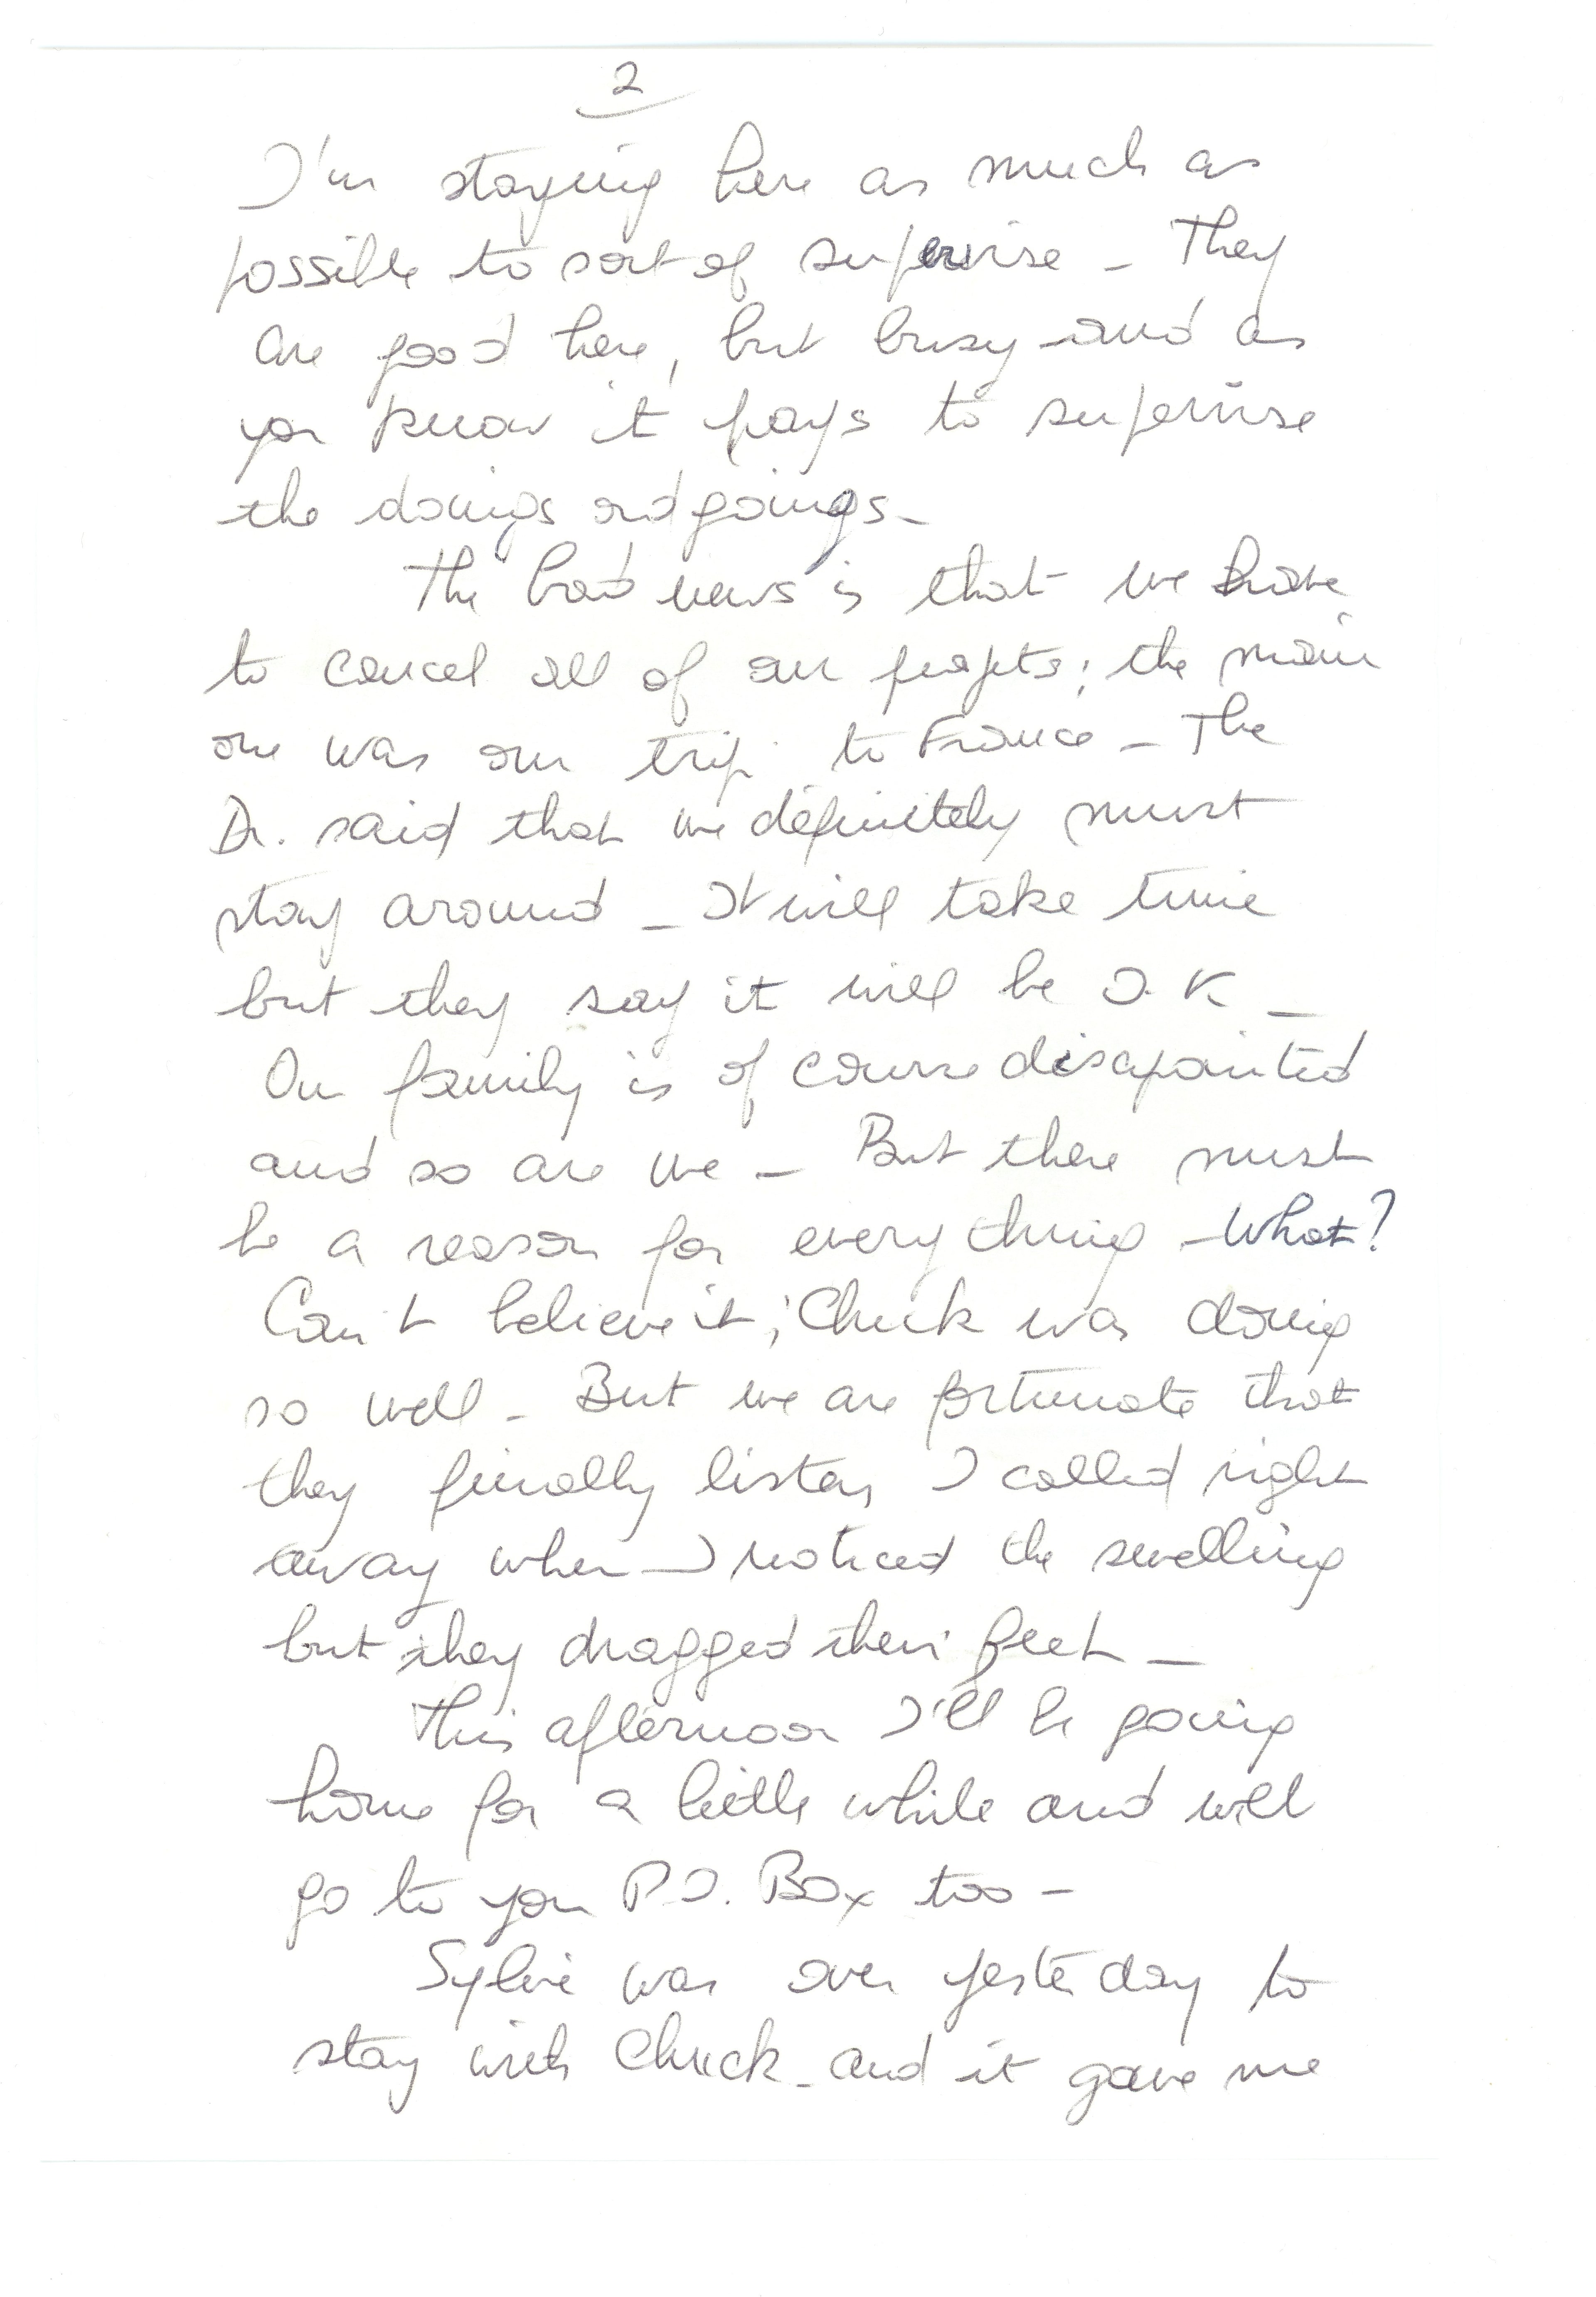 2
I'm staying here as much as
possible to sort of supervise - They
are good here, but busy and as
you know it pays to supervise
the doings and goings -
The bad news is that we have
to cancel all of our projets; the main
one was our trip to France - The
Dr. said that we definitely must
stay around - It will take time
but they say it will be O.K -
Our family is of course disapointed
and so are we - But there must
be a reason for every thing - What?
Can't believe it; Chuck was doing
so well - But we are fortunate that
they finally listen, I called right
away when I noticed the swelling
but they dragged their feet -
This afternoon I'll be going
home for a little while and will
go to your P.O. Box too -
Sylvie was over yesterday to
stay with Chuck - and it gave me